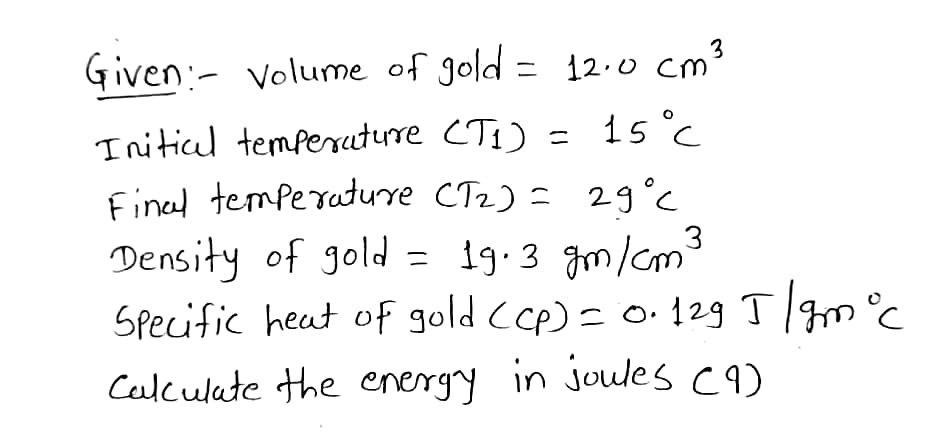 Given:- Volume of gold = 12.0 cm³
Initial temperature (T₁) = 15°C
Final temperature (T₂) = 29°C
Density of gold = 19.3 gm/cm³
Specific heat of gold (CP) = 0.129 J/gm°C
Calculate the energy in joules (q)